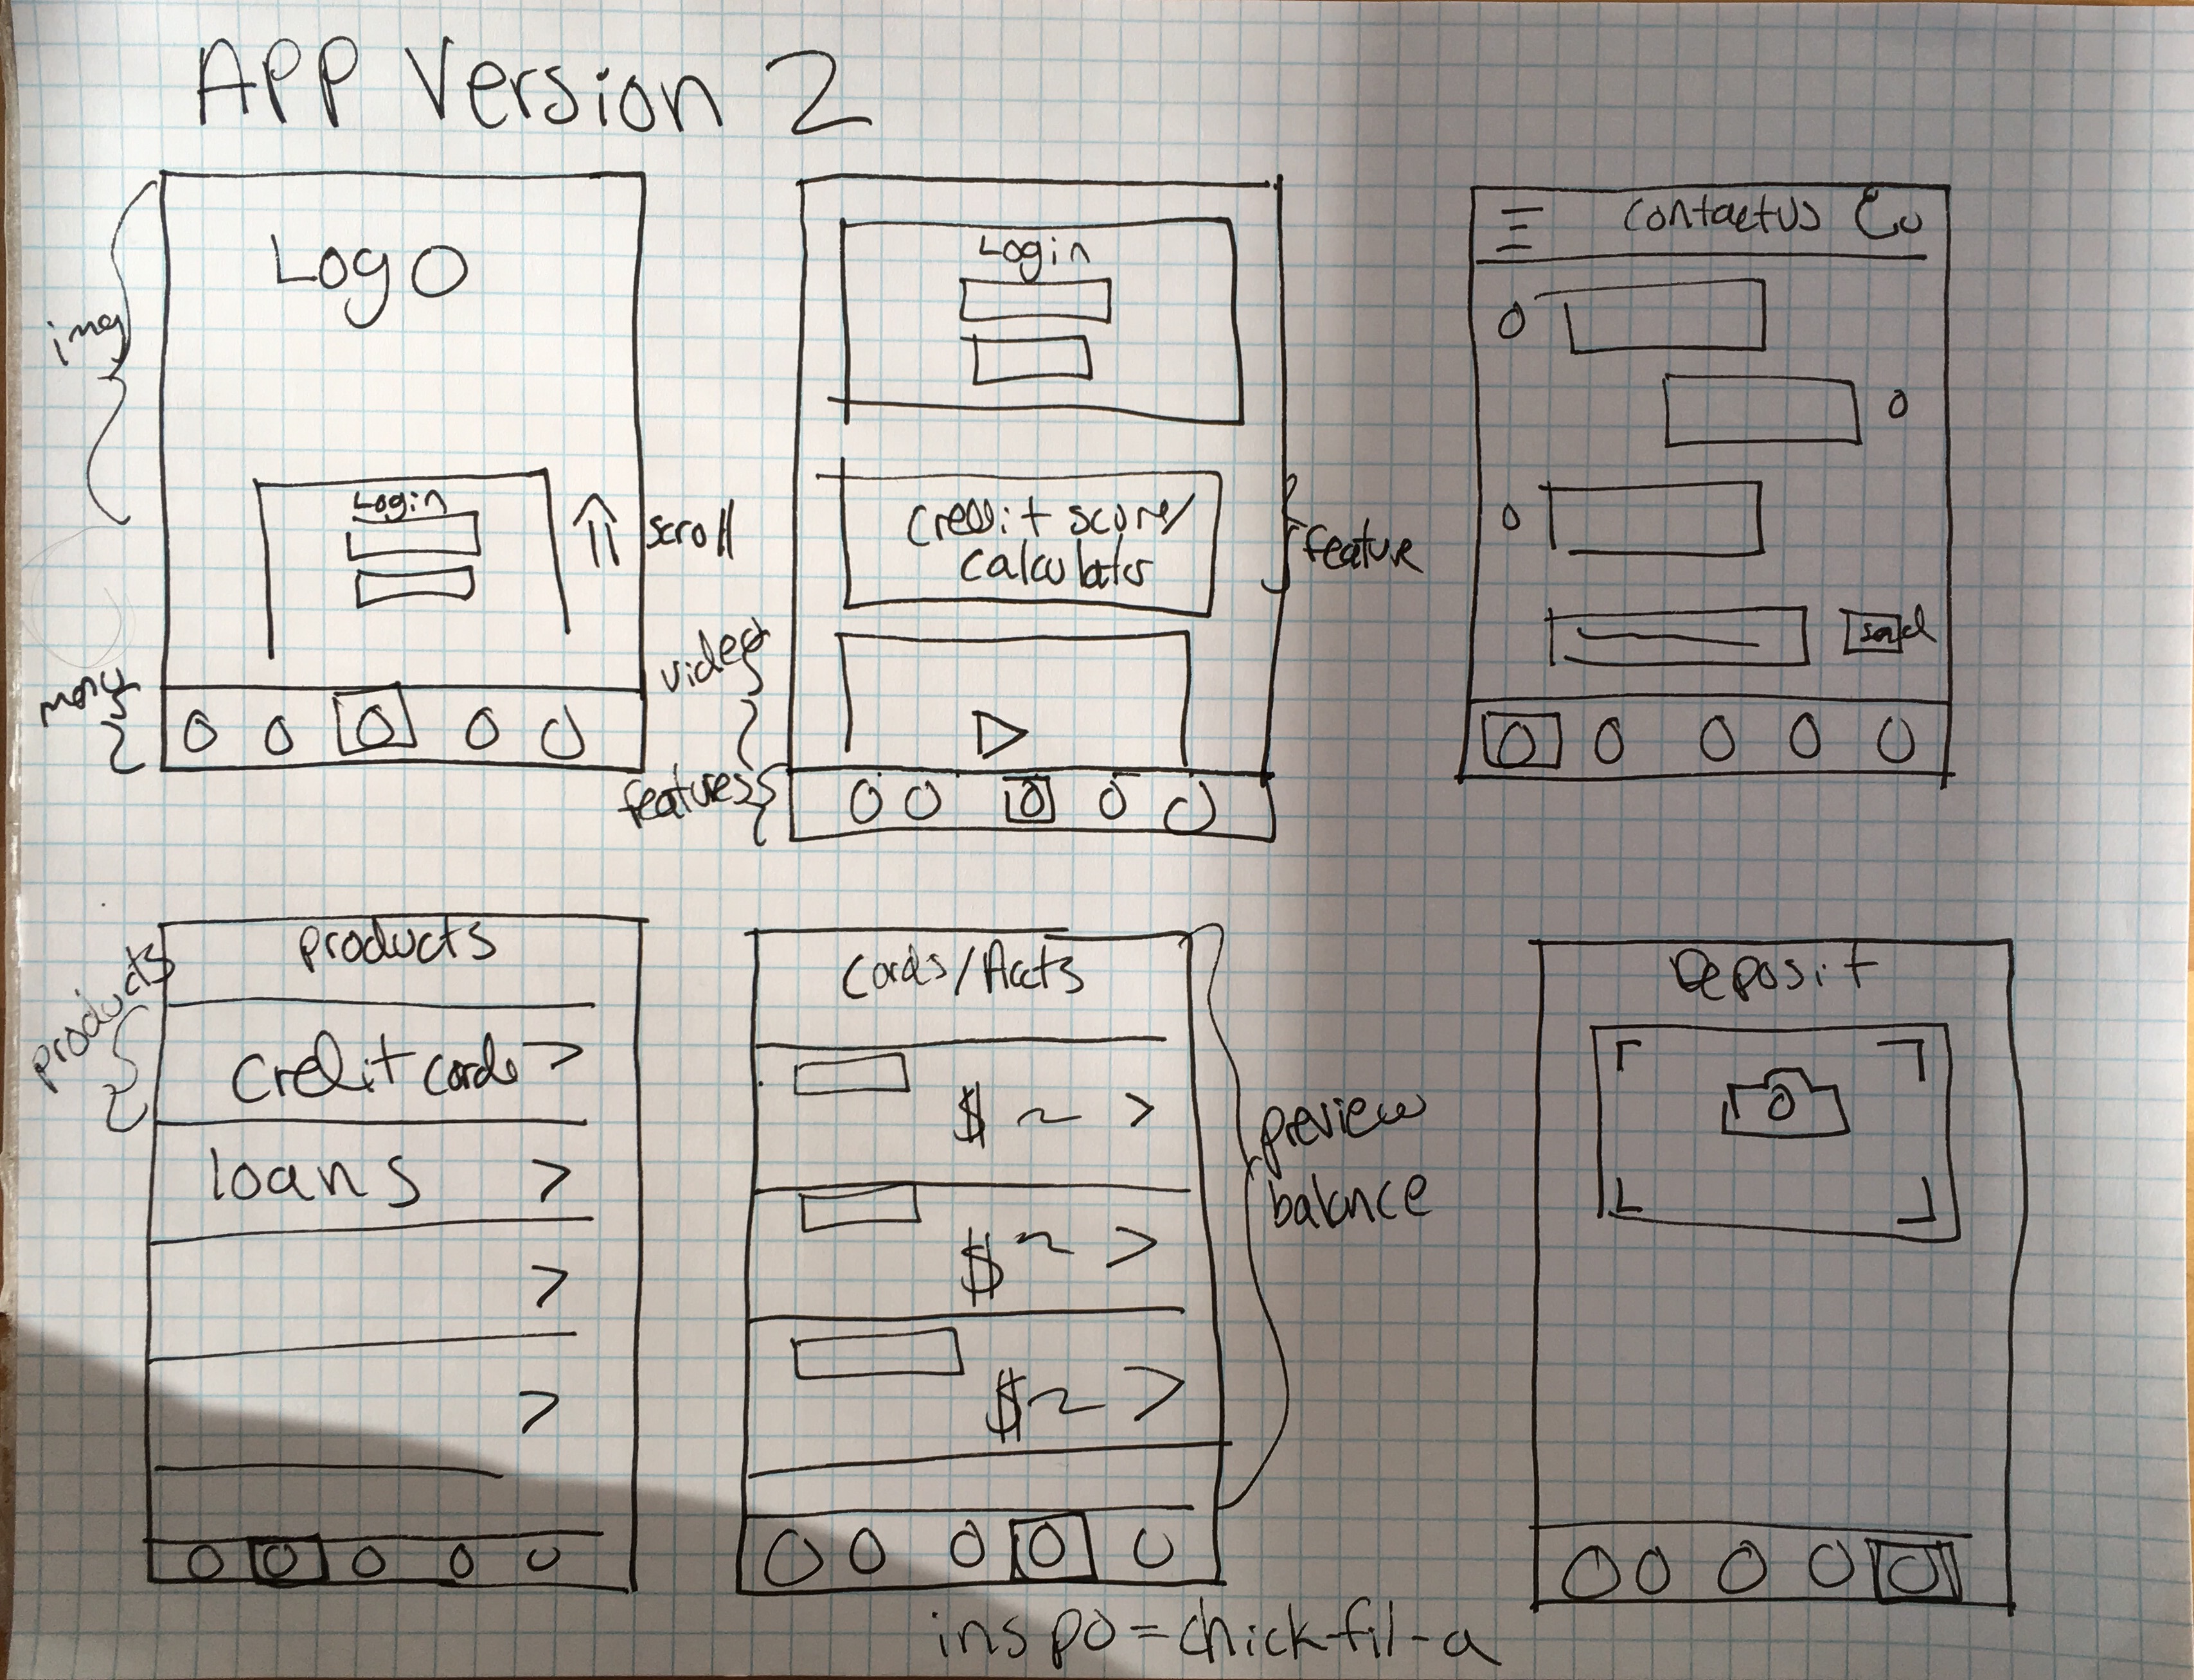 APP Version 2
img
Logo
Login
scroll
menu
Login
credit score/
calculator
feature
video
features
contact us
send
products
products
credit cards
loans
Cards/Accts
$
$
$
preview
balance
Deposit
inspo=chick-fil-a